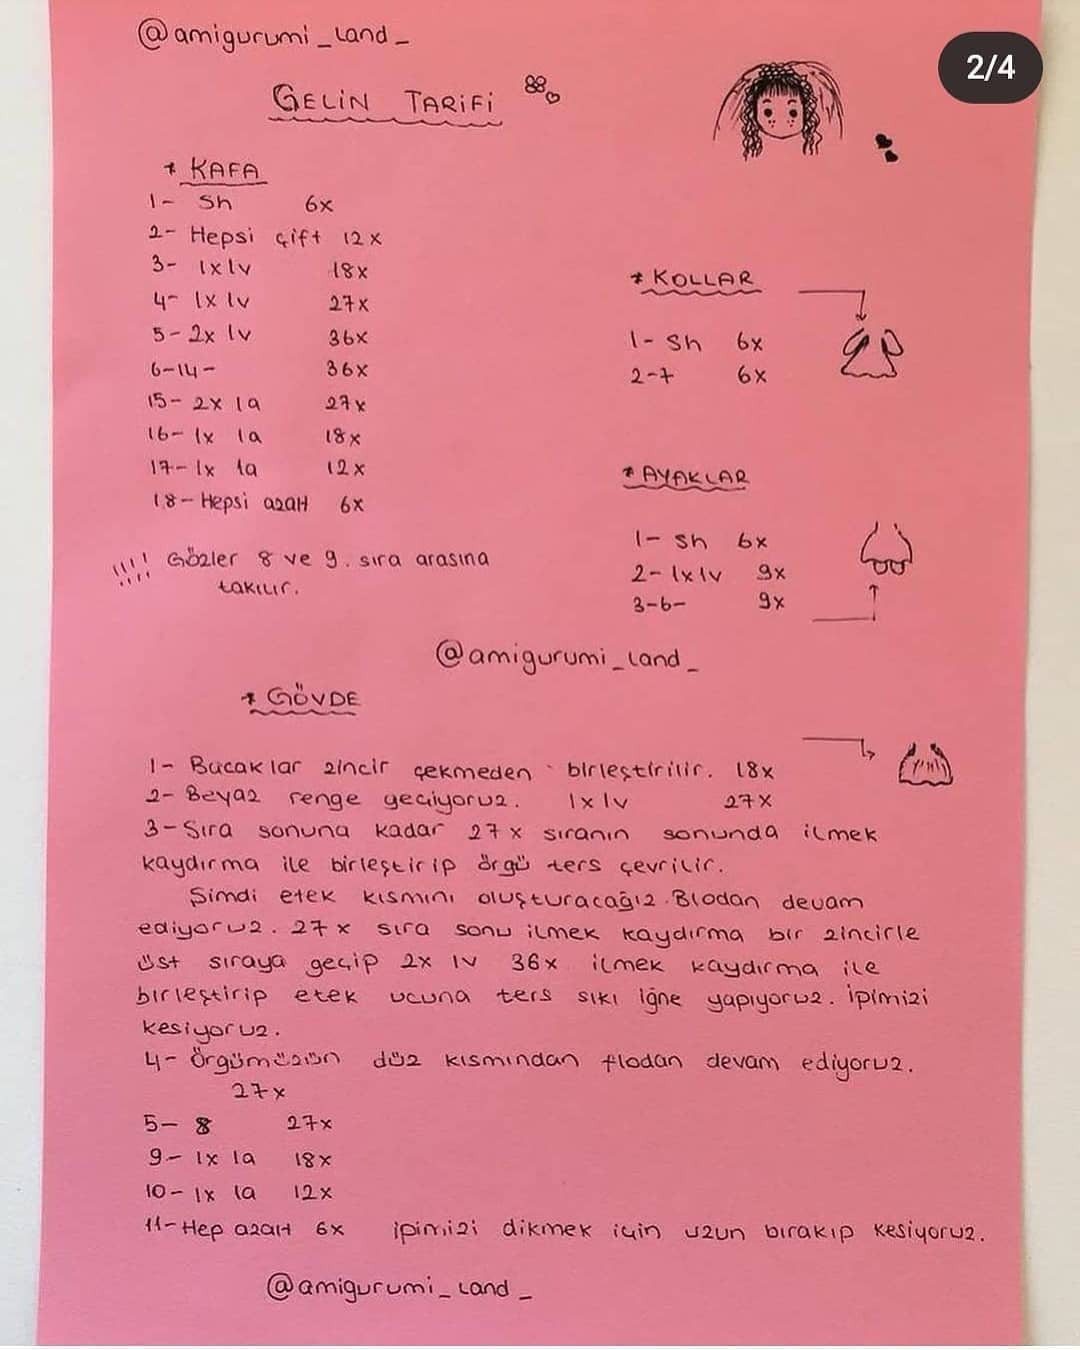 @amigurumi_land_
2/4
GELİN TARİFİ
* KAFA
1- Sh 6x
2- Hepsi çift 12x
3- 1x1v 18x
4- 1x1v 27x
5- 2x 1v 36x
6-14- 36x
15- 2x 1a 27x
16- 1x 1a 18x
17- 1x 1a 12x
18- Hepsi azalt 6x
!!!! Gözler 8 ve 9. sıra arasına
takılır.
* KOLLAR
1- sh 6x
2-7 6x
* AYAKLAR
1- sh 6x
2- 1x1v 9x
3-6- 9x
@amigurumi_land_
* GÖVDE
1- Bacaklar zincir çekmeden birleştirilir. 18x
2- Beyaz renge geçiyoruz. 1x1v 27x
3- Sıra sonuna kadar 27x sıranın sonunda ilmek
kaydırma ile birleştirip örgü ters çevrilir.
Şimdi etek kısmını oluşturacağız. Blodan devam
ediyoruz. 27x sıra sonu ilmek kaydırma bir zincirle
üst sıraya geçip 2x 1v 36x ilmek kaydırma ile
birleştirip etek ucuna ters sıkı iğne yapıyoruz. İpimizi
kesiyoruz.
4- Örgümüzün düz kısmından flodan devam ediyoruz.
27x
5- 8 27x
9- 1x 1a 18x
10- 1x 1a 12x
11- Hep azalt 6x ipimizi dikmek için uzun bırakıp kesiyoruz.
@amigurumi_land_